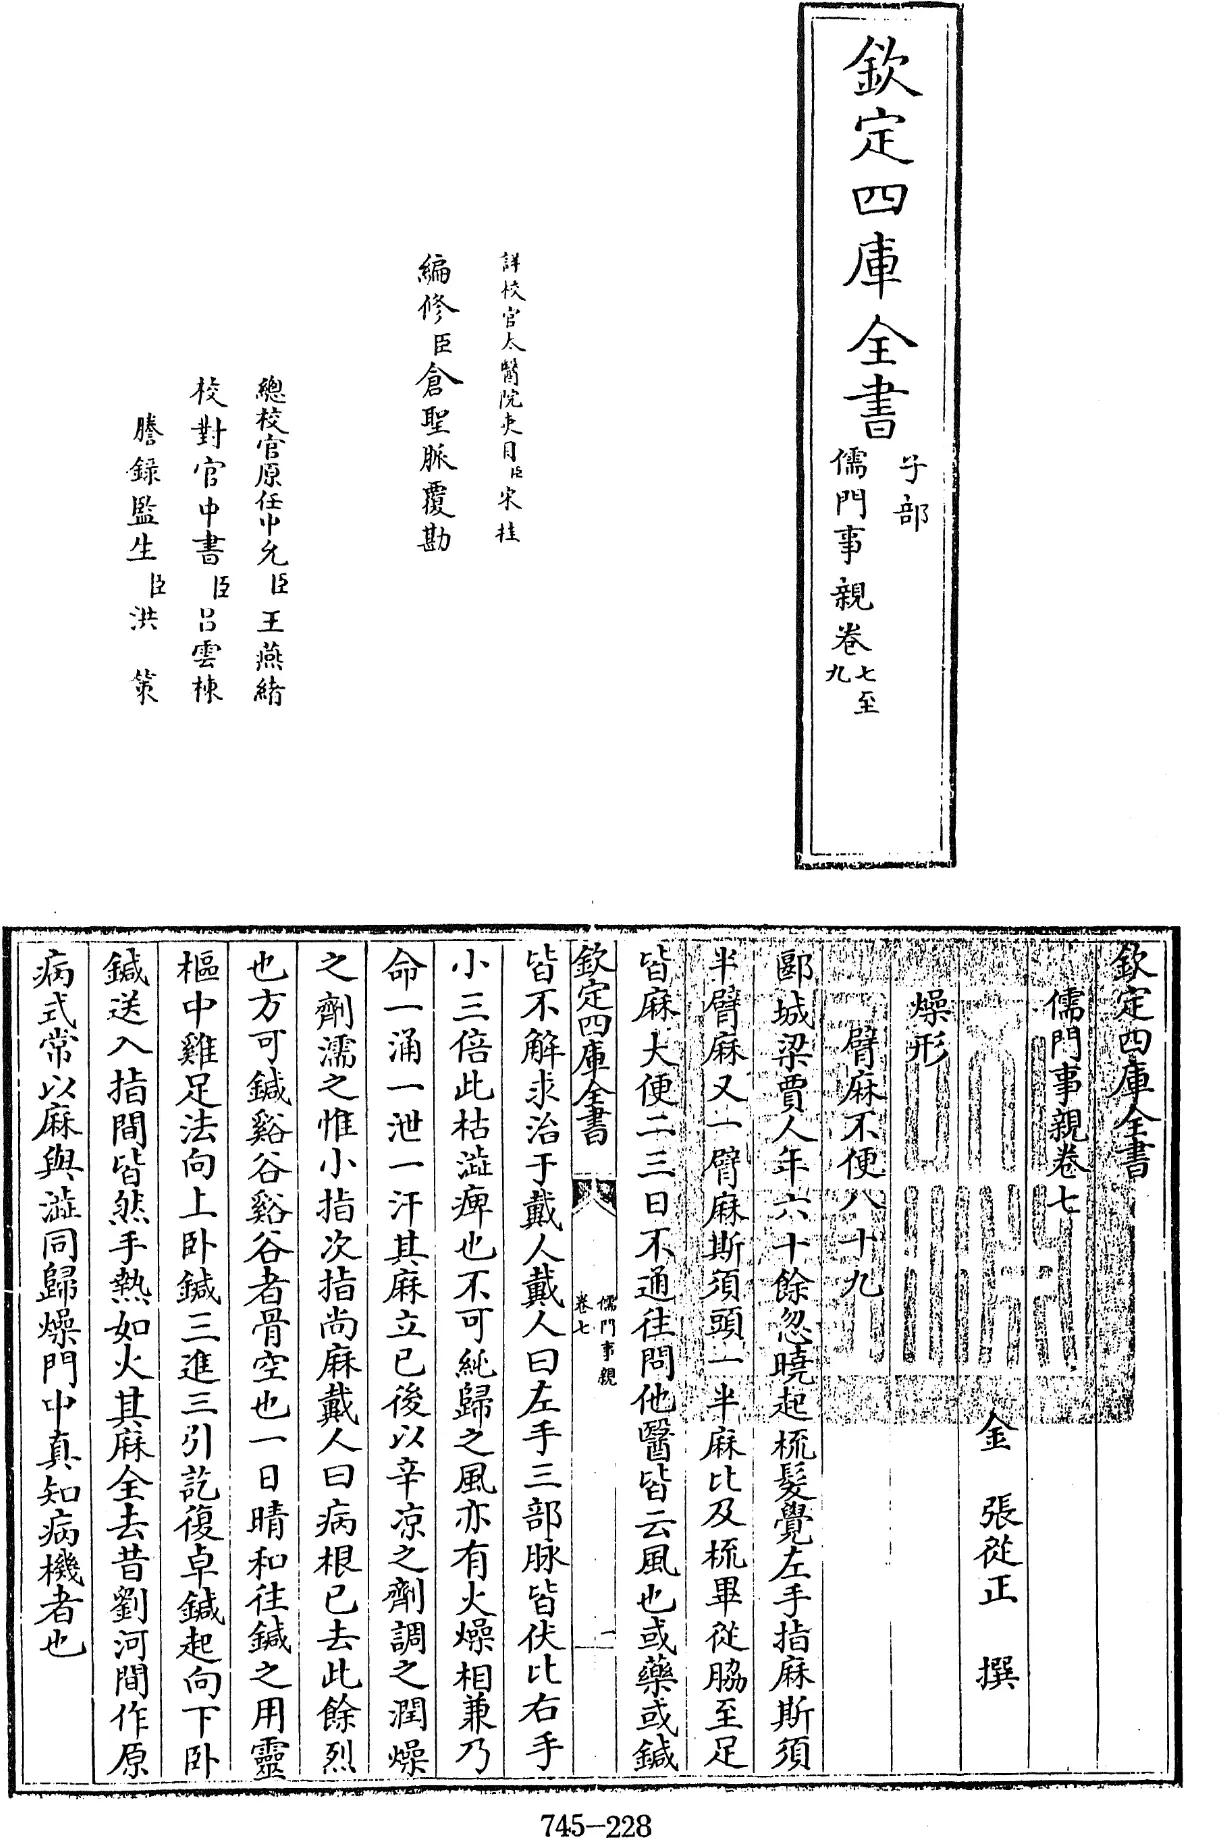 欽定四庫全書
子部
儒門事親卷七至九
詳校官太醫院吏目臣宋桂
編修臣倉聖脈覆勘
總校官原任中允臣王燕緒
校對官中書臣呂雲棟
謄錄監生臣洪策
欽定四庫全書
儒門事親卷七
金 張從正 撰
燥形
臂麻不便八十九
郾城梁賈人年六十餘忽曉起梳髮覺左手指麻斯須
半臂麻又一臂麻斯須頭一半麻比及梳畢從脇至足
皆麻大便二三日不通往問他醫皆云風也或藥或鍼
欽定四庫全書
儒門事親
卷七
一
皆不解求治于戴人戴人曰左手三部脉皆伏比右手
小三倍此枯澁痺也不可純歸之風亦有火燥相兼乃
命一涌一泄一汗其麻立已後以辛凉之劑調之潤燥
之劑濡之惟小指次指尚麻戴人曰病根已去此餘烈
也方可鍼谿谷谿谷者骨空也一日晴和往鍼之用靈
樞中雞足法向上卧鍼三進三引訖復卓鍼起向下卧
鍼送入指間皆然手熱如火其麻全去昔劉河間作原
病式常以麻與澁同歸燥門中真知病機者也
745-228